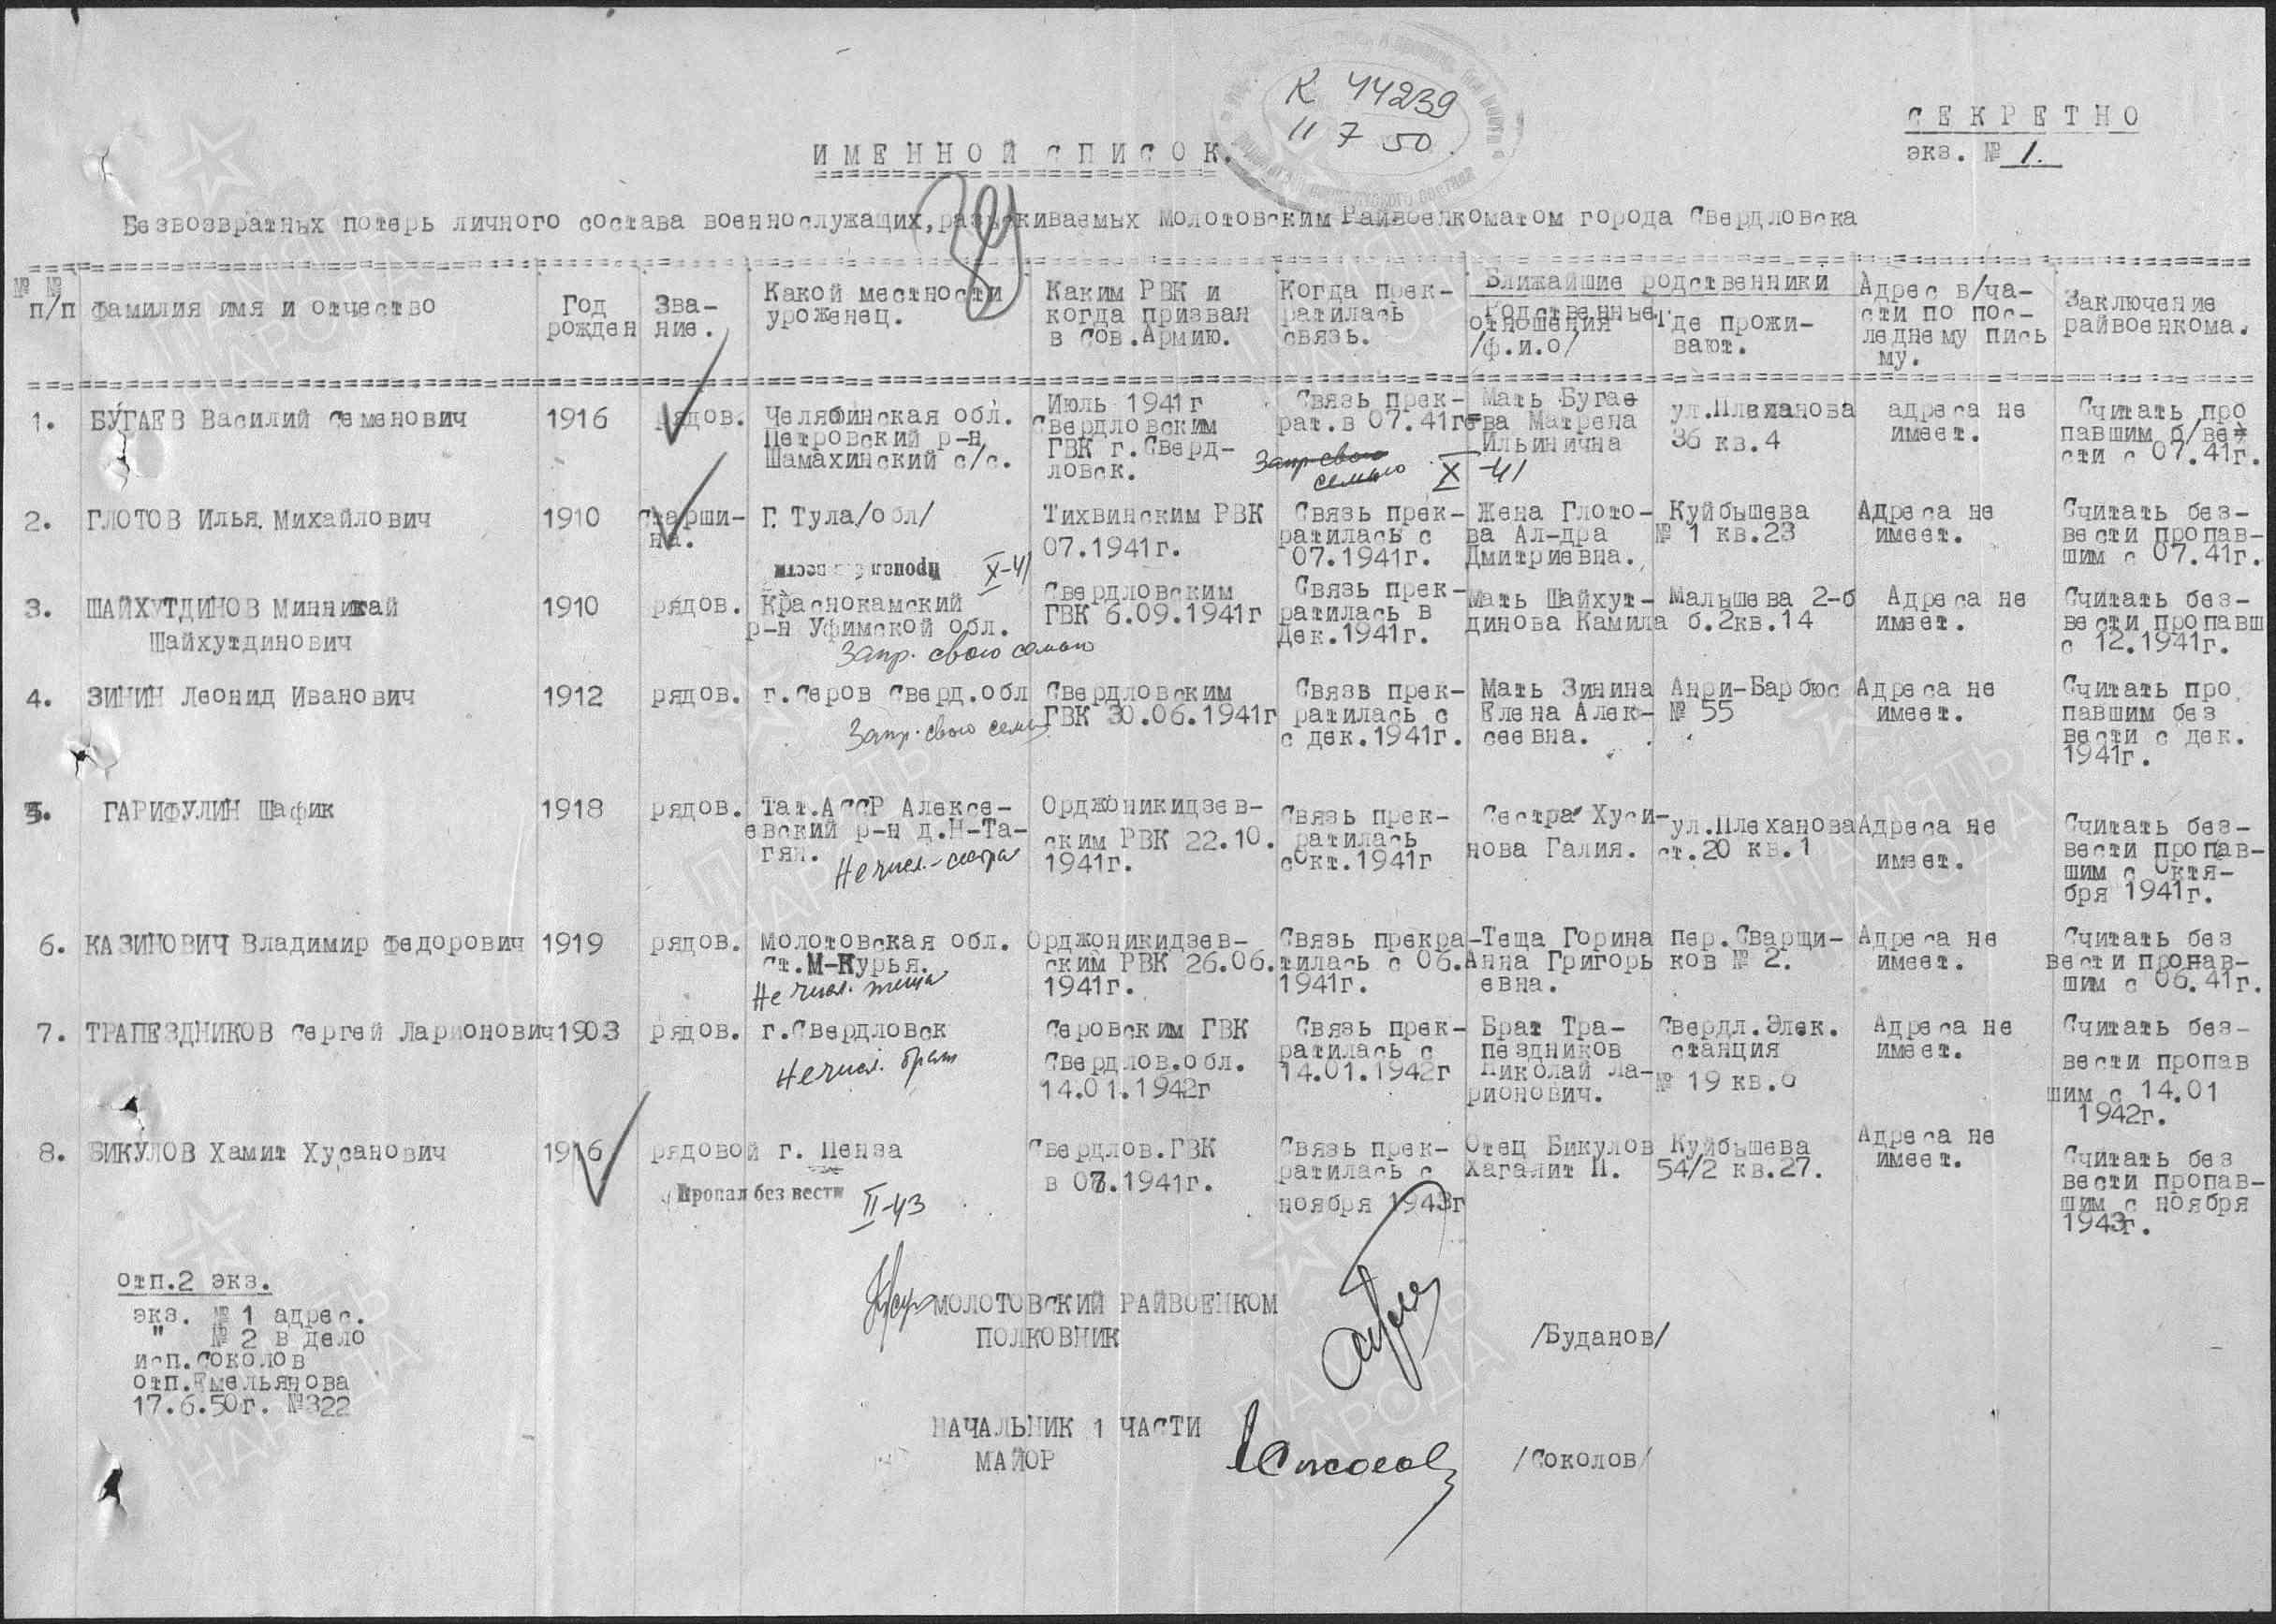 К 44239
11 7 50.
СЕКРЕТНО
экз. № 1.
ИМЕННОЙ СПИСОК.
Безвозвратных потерь личного состава военнослужащих, разыскиваемых Молотовским Райвоенкоматом города Свердловска
№ № п/п
фамилия имя и отчество
Год рожден
Зва-
ние.
Какой местности
уроженец.
Каким РВК и
когда призван
в Сов.Армию.
Когда прек-
ратилась
связь.
Ближайшие родственники
Родственные
отношения
/ф.и.о/
Где прожи-
вают.
Адрес в/ча-
сти по пос-
леднему пись
му.
Заключение
райвоенкома.
1. БУГАЕВ Василий Семенович
1916
рядов.
Челябинская обл.
Петровский р-н
Шамахинский с/с.
Июль 1941г
Свердловским
ГВК г.Сверд-
ловск.
Связь прек-
рат.в 07.41г
Запр свою
семью
X -41
Мать Бугае
ева Матрена
Ильинична
ул.Плеханова
36 кв.4
адреса не
имеет.
Считать про
павшим б/ве
сти с 07.41г.
2. ГЛОТОВ Илья Михайлович
1910
Старши-
на.
Г. Тула/обл/
Пропал без вести X-41
Тихвинским РВК
07.1941г.
Связь прек-
ратилась с
07.1941г.
Жена Глото-
ва Ал-дра
Дмитриевна.
Куйбышева
№ 1 кв.23
Адреса не
имеет.
Считать без-
вести пропав-
шим с 07.41г.
3. ШАЙХУТДИНОВ Миннигай
Шайхутдинович
1910
рядов.
Краснокамский
р-н Уфимской обл.
Запр. свою семью
Свердловским
ГВК 6.09.1941г
Связь прек-
ратилась в
Дек.1941г.
Мать Шайхут-
динова Камила
Малышева 2-б
б.2кв.14
Адреса не
имеет.
Считать без-
вести пропавш
с 12.1941г.
4. ЗИНИН Леонид Иванович
1912
рядов.
г.Серов Сверд.обл
Запр. свою семью
Свердловским
ГВК 30.06.1941г
Связв прек-
ратилась с
с дек.1941г.
Мать Зинина
Елена Алек-
сеевна.
Анри-Барбюс
№ 55
Адреса не
имеет.
Считать про
павшим без
вести с дек.
1941г.
5. ГАРИФУЛИН Шафик
1918
рядов.
Тат.АССР Алексе-
евский р-н д.Н-Та-
гян.
Не числ.-сестра
Орджоникидзев-
ским РВК 22.10.
1941г.
Связь прек-
ратилась
сОкт.1941г
Сестра Хуси-
нова Галия.
ул.Плеханова
ст.20 кв.1
Адреса не
имеет.
Считать без-
вести пропав-
шим с Октя-
бря 1941г.
6. КАЗИНОВИЧ Владимир Федорович
1919
рядов.
Молотовская обл.
ст.М-Курья.
Не числ. теща
Орджоникидзев-
ским РВК 26.06.
1941г.
Связь прекра-
тилась с 06.
1941г.
Теща Горина
Анна Григорь
евна.
пер.Сварщи-
ков № 2.
Адреса не
имеет.
Считать без
вести пропав-
шим с 06.41г.
7. ТРАПЕЗДНИКОВ Сергей Ларионович
1903
рядов.
г.Свердловск
Не числ. брат
Серовским ГВК
Свердлов.обл.
14.01.1942г
Связь прек-
ратилась с
14.01.1942г
Брат Тра-
пездников
Николай Ла-
рионович.
Свердл.Элек.
станция
№ 19 кв.6
Адреса не
имеет.
Считать без-
вести пропав
шим с 14.01
1942г.
8. БИКУЛОВ Хамит Хусанович
1916
рядовой
г. Пенза
Пропал без вести
II-43
Свердлов.ГВК
в 08.1941г.
Связь прек-
ратилась с
ноября 1943г
Отец Бикулов
Хагалит П.
Куйбышева
54/2 кв.27.
Адреса не
имеет.
Считать без
вести пропав-
шим с ноября
1943г.
отп.2 экз.
экз. № 1 адрес.
" № 2 в дело
исп.Соколов
отп.Емельянова
17.6.50г. №322
МОЛОТОВСКИЙ РАЙВОЕНКОМ
ПОЛКОВНИК
/Буданов/
НАЧАЛЬНИК 1 ЧАСТИ
МАЙОР
/Соколов/
ПАМЯТЬ
НАРОДА